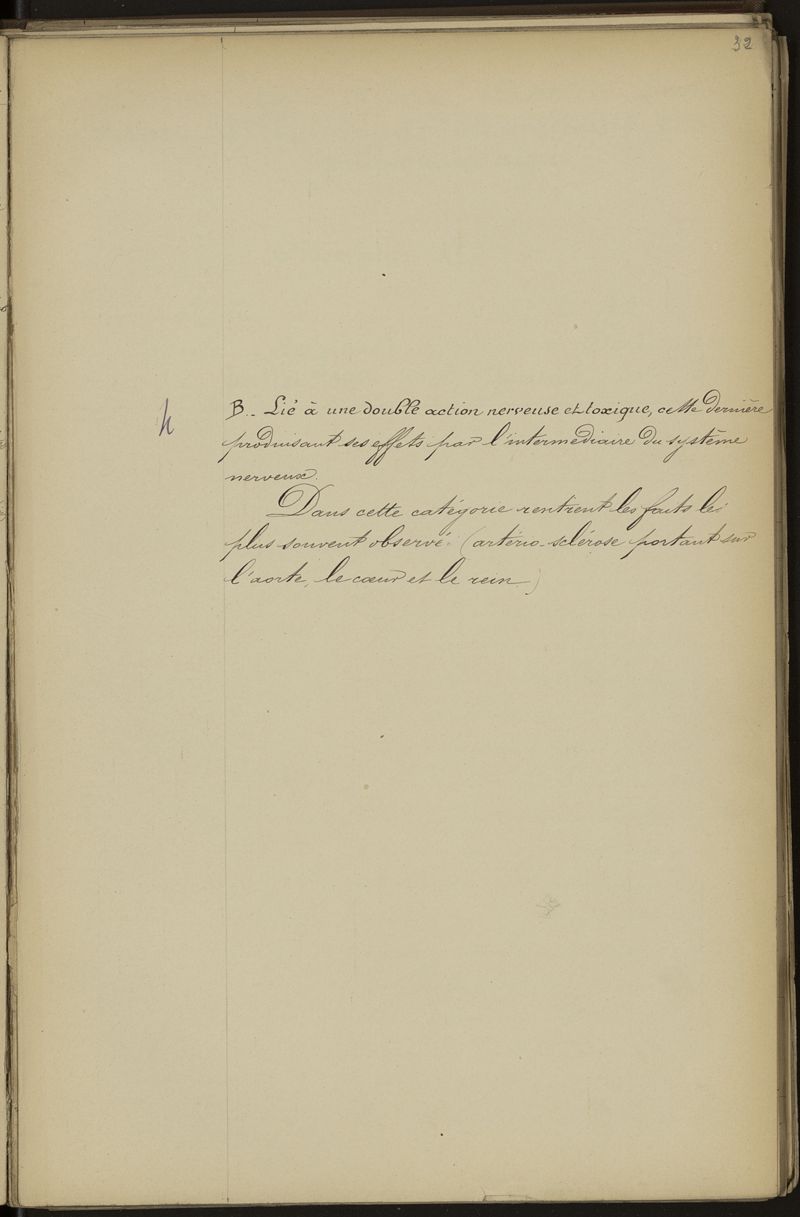 32
B.. Lié à une double action nerveuse et toxique, cette dernière
produisant ses effets par l'intermédiaire du système
nerveux.
Dans cette catégorie rentrent les faits les
plus souvent observés (artério-sclérose portant sur
l'aorte, le cœur et le rein.)